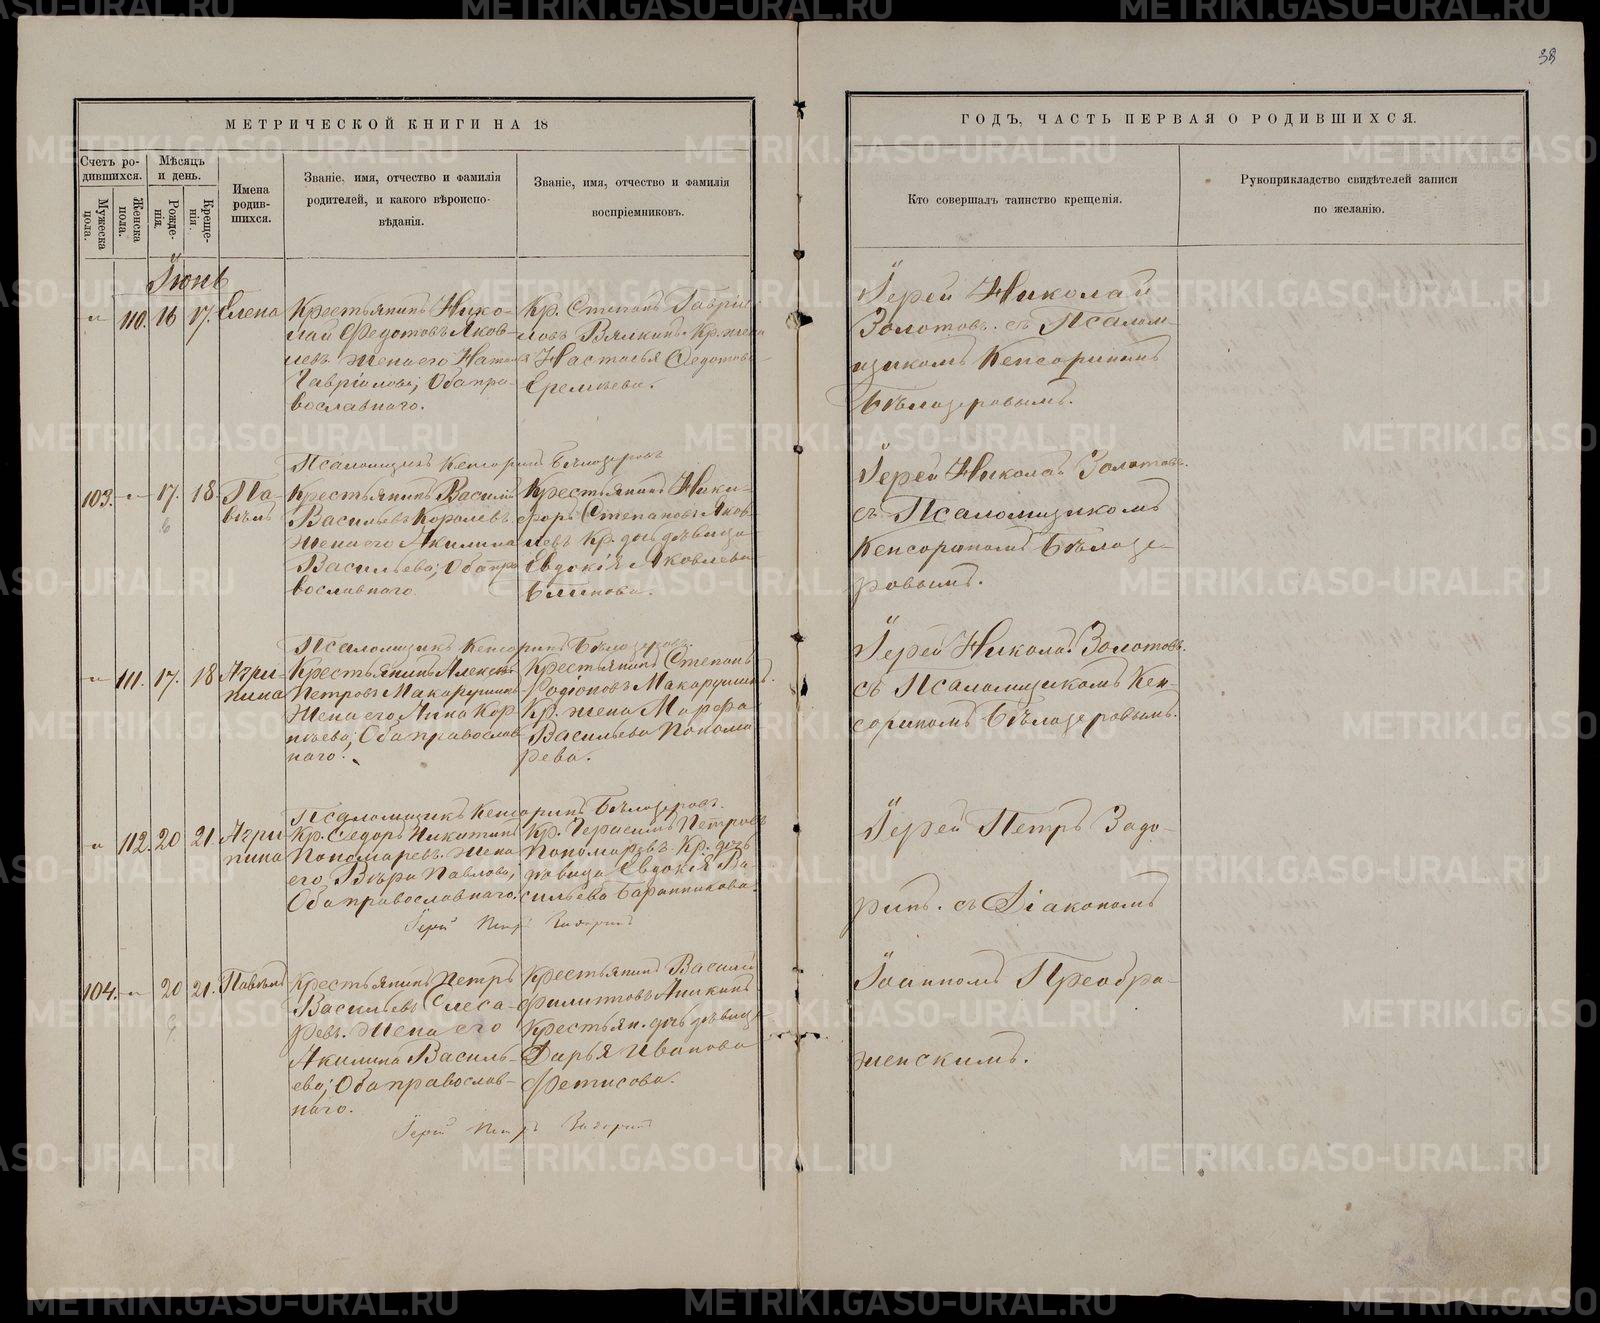 38
МЕТРИЧЕСКОЙ КНИГИ НА 18
ГОДЪ, ЧАСТЬ ПЕРВАЯ О РОДИВШИХСЯ.
Счетъ ро-
дившихся.
Мужеска
пола.
Женска
пола.
Мѣсяцъ
и день.
Рожде-
нія.
Креще-
нія.
Имена
родив-
шихся.
Званіе, имя, отчество и фамилія
родителей, и какого вѣроиспо-
вѣданія.
Званіе, имя, отчество и фамилія
воспріемниковъ.
Кто совершалъ таинство крещенія.
Рукоприкладство свидѣтелей записи
по желанію.
Іюнь
110. 16 17. Елена
Крестьянинъ Нико-
лай Ѳедотовъ Яков-
левъ жена его Наталья
Гавріилова; Оба пра-
вославнаго.
Кр. Степанъ Гавріи-
ловъ Вялкинъ. Кр. жена
Настасья Ѳедотова
Еремѣева.
Іерей Николай
Золотовъ. съ Псалом-
щикомъ Кенсориномъ
Бѣлозеровымъ.
Псаломщикъ Кенсоринъ Бѣлозеровъ
103. 17. 18. Па-
велъ
Крестьянинъ Василій
Васильевъ Королевъ.
жена его Акилина
Васильева; Оба пра
вославнаго
Крестьянинъ Ники-
форъ Степановъ Яков
левъ Кр. дочь дѣвица
Евдокія Яковлева
Блинова.
Іерей Николай Золотовъ.
съ Псаломщикомъ
Кенсориномъ Бѣлозе-
ровымъ.
Псаломщикъ Кенсоринъ Бѣлозеровъ.
111. 17. 18 Агри-
пина
Крестьянинъ Алексѣй
Петровъ Макарушинъ
жена его Анна Кор
нѣева; Оба православ
наго.
Крестьянинъ Степанъ
Родіоновъ Макарушинъ.
Кр. жена Марфа
Васильева Понома
рева.
Іерей Николай Золотовъ.
съ Псаломщикомъ Кен-
сориномъ Бѣлозеровымъ.
Псаломщикъ Кенсоринъ Бѣлозеровъ.
112. 20 21. Агри
пина
Кр. Ѳедоръ Никитинъ
Пономаревъ. жена
его Вѣра Павлова;
Оба православнаго.
Кр. Герасимъ Петровъ
Пономаревъ Кр. дочь
дѣвица Евдокія Ва-
сильева Баранникова.
Іерей Петръ Задоринъ
Іерей Петръ Задо-
ринъ. съ Діакономъ
Іоанномъ Преобра-
женскимъ.
104. 20 21. Павелъ
Крестьянинъ Петръ
Васильевъ Слеса-
ревъ. жена его
Акилина Василь-
ева; Оба православ-
наго.
Крестьянинъ Василій
Филипповъ Аникинъ
Крестьян. дочь дѣвица
Дарья Иванова
Фетисова.
Іерей Петръ Задоринъ
METRIKI.GASO-URAL.RU